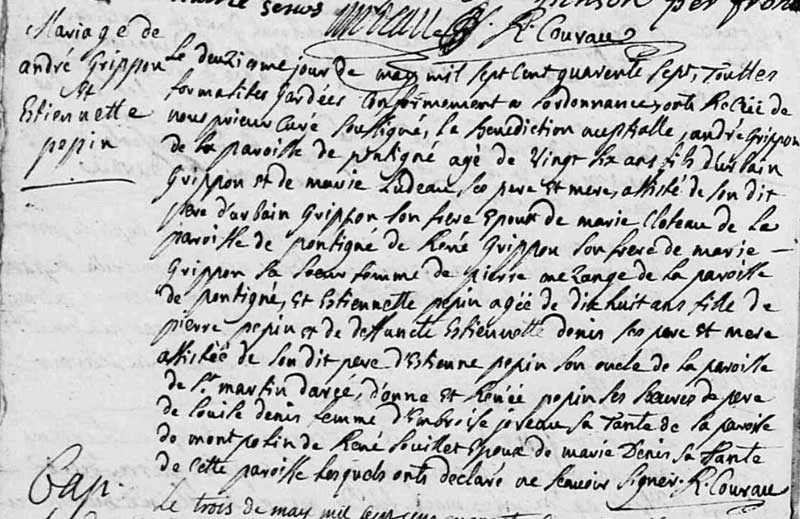 R. Courau
Mariage de
andré Grippon
Et
Estiennette
pepin
Le deuziesme jour de may mil sept cent quarente sept, touttes
formalites gardées Conformement a lordonnance, onts Receüe de
nous prieur curé soussigné, la benediction nuptialle, andré Grippon
de la paroisse de pontigné agé de vingt six ans fils d'urbain
Grippon et de marie Ludeau ses pere et mere, assisté de son dit
pere d'urbain Grippon son frere Epoux de marie Cloteau de la
paroisse de pontigné de René Grippon son frere de marie
Grippon sa soeur femme de pierre melange de la paroisse
de pontigné, et Estiennette pepin agée de dixhuit ans fille de
pierre pepin et de deffuncte Estiennette denis ses pere et mere
assistée de son dit pere d'Estienne pepin son oncle de la paroisse
de St martin darcé, d'anne et Renée pepin ses soeures de pere
de Louise denis femme d'Embroise joreau sa tante de la paroisse
de montpolin de René souillet Epoux de marie Denis sa tante
de cette paroisse lesquels onts declaré ne scavoir signer. R. Courau
Bap.
Le trois de may mil sept cens quarente